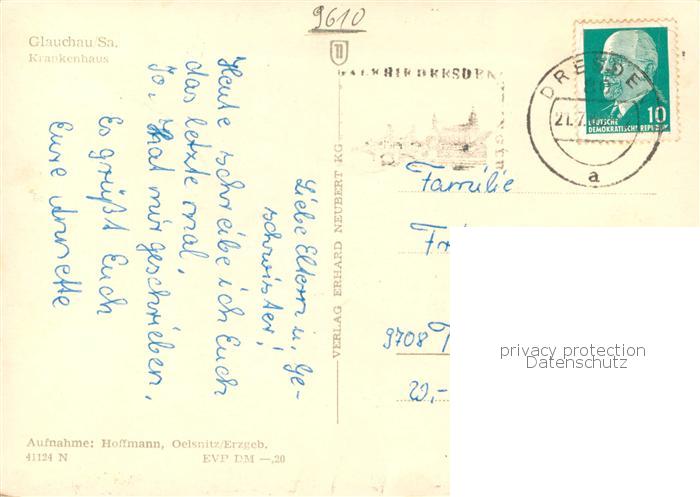 9610
Glauchau/Sa.
Krankenhaus
Liebe Eltern u. Ge-
schwister!
Heute schreibe ich Euch
das letzte mal.
Jo, hat mir geschrieben.
Es grüßt Euch
Eure Annette
VERLAG ERHARD NEUBERT KG
DRESDEN
DRESDE
21.7.
a
10
DEUTSCHE
DEMOKRATISCHE REPUBLIK
Familie
9708
privacy protection
Datenschutz
Aufnahme: Hoffmann, Oelsnitz/Erzgeb.
41124 N EVP DM —,20